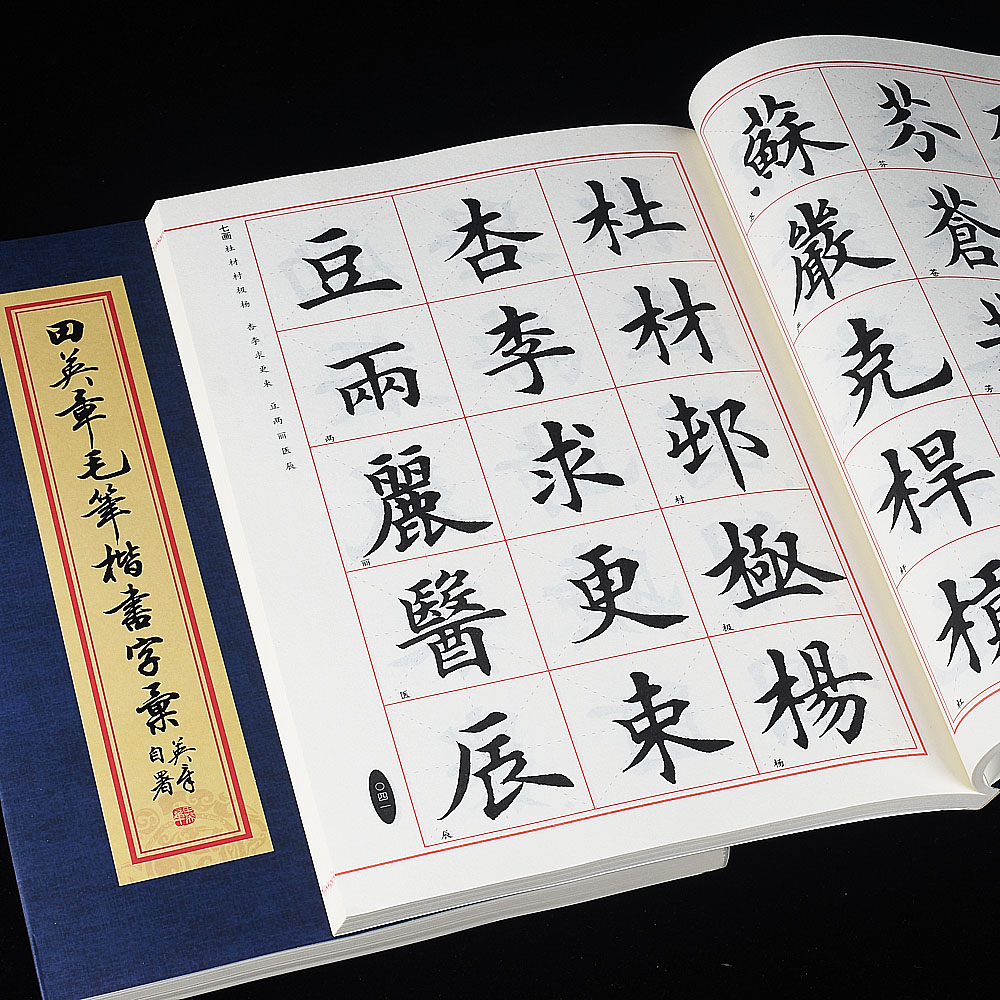 田英章毛筆楷書字彙
英章
自署
七画
杜材村极杨
杏李求更束
豆两丽医辰
杜材邨極楊
杏李求更束
豆兩麗醫辰
村
极
杨
两
丽
医
辰
〇四一
芬蒼
蘇嚴克桿橫
芬
苍
杆
杠